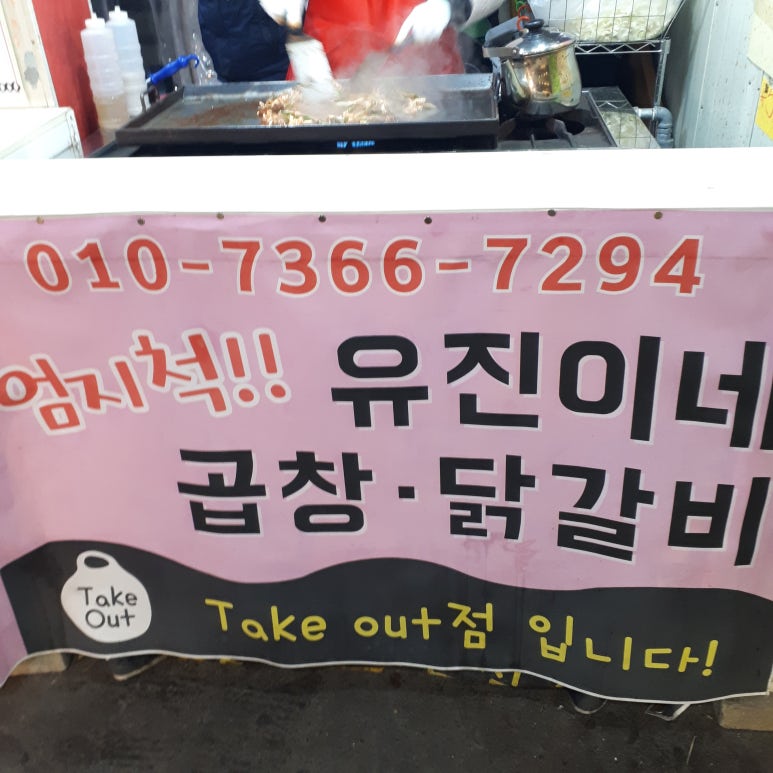 010-7366-7294
엄지척!! 유진이네
곱창·닭갈비
Take
Out
Take out점 입니다!